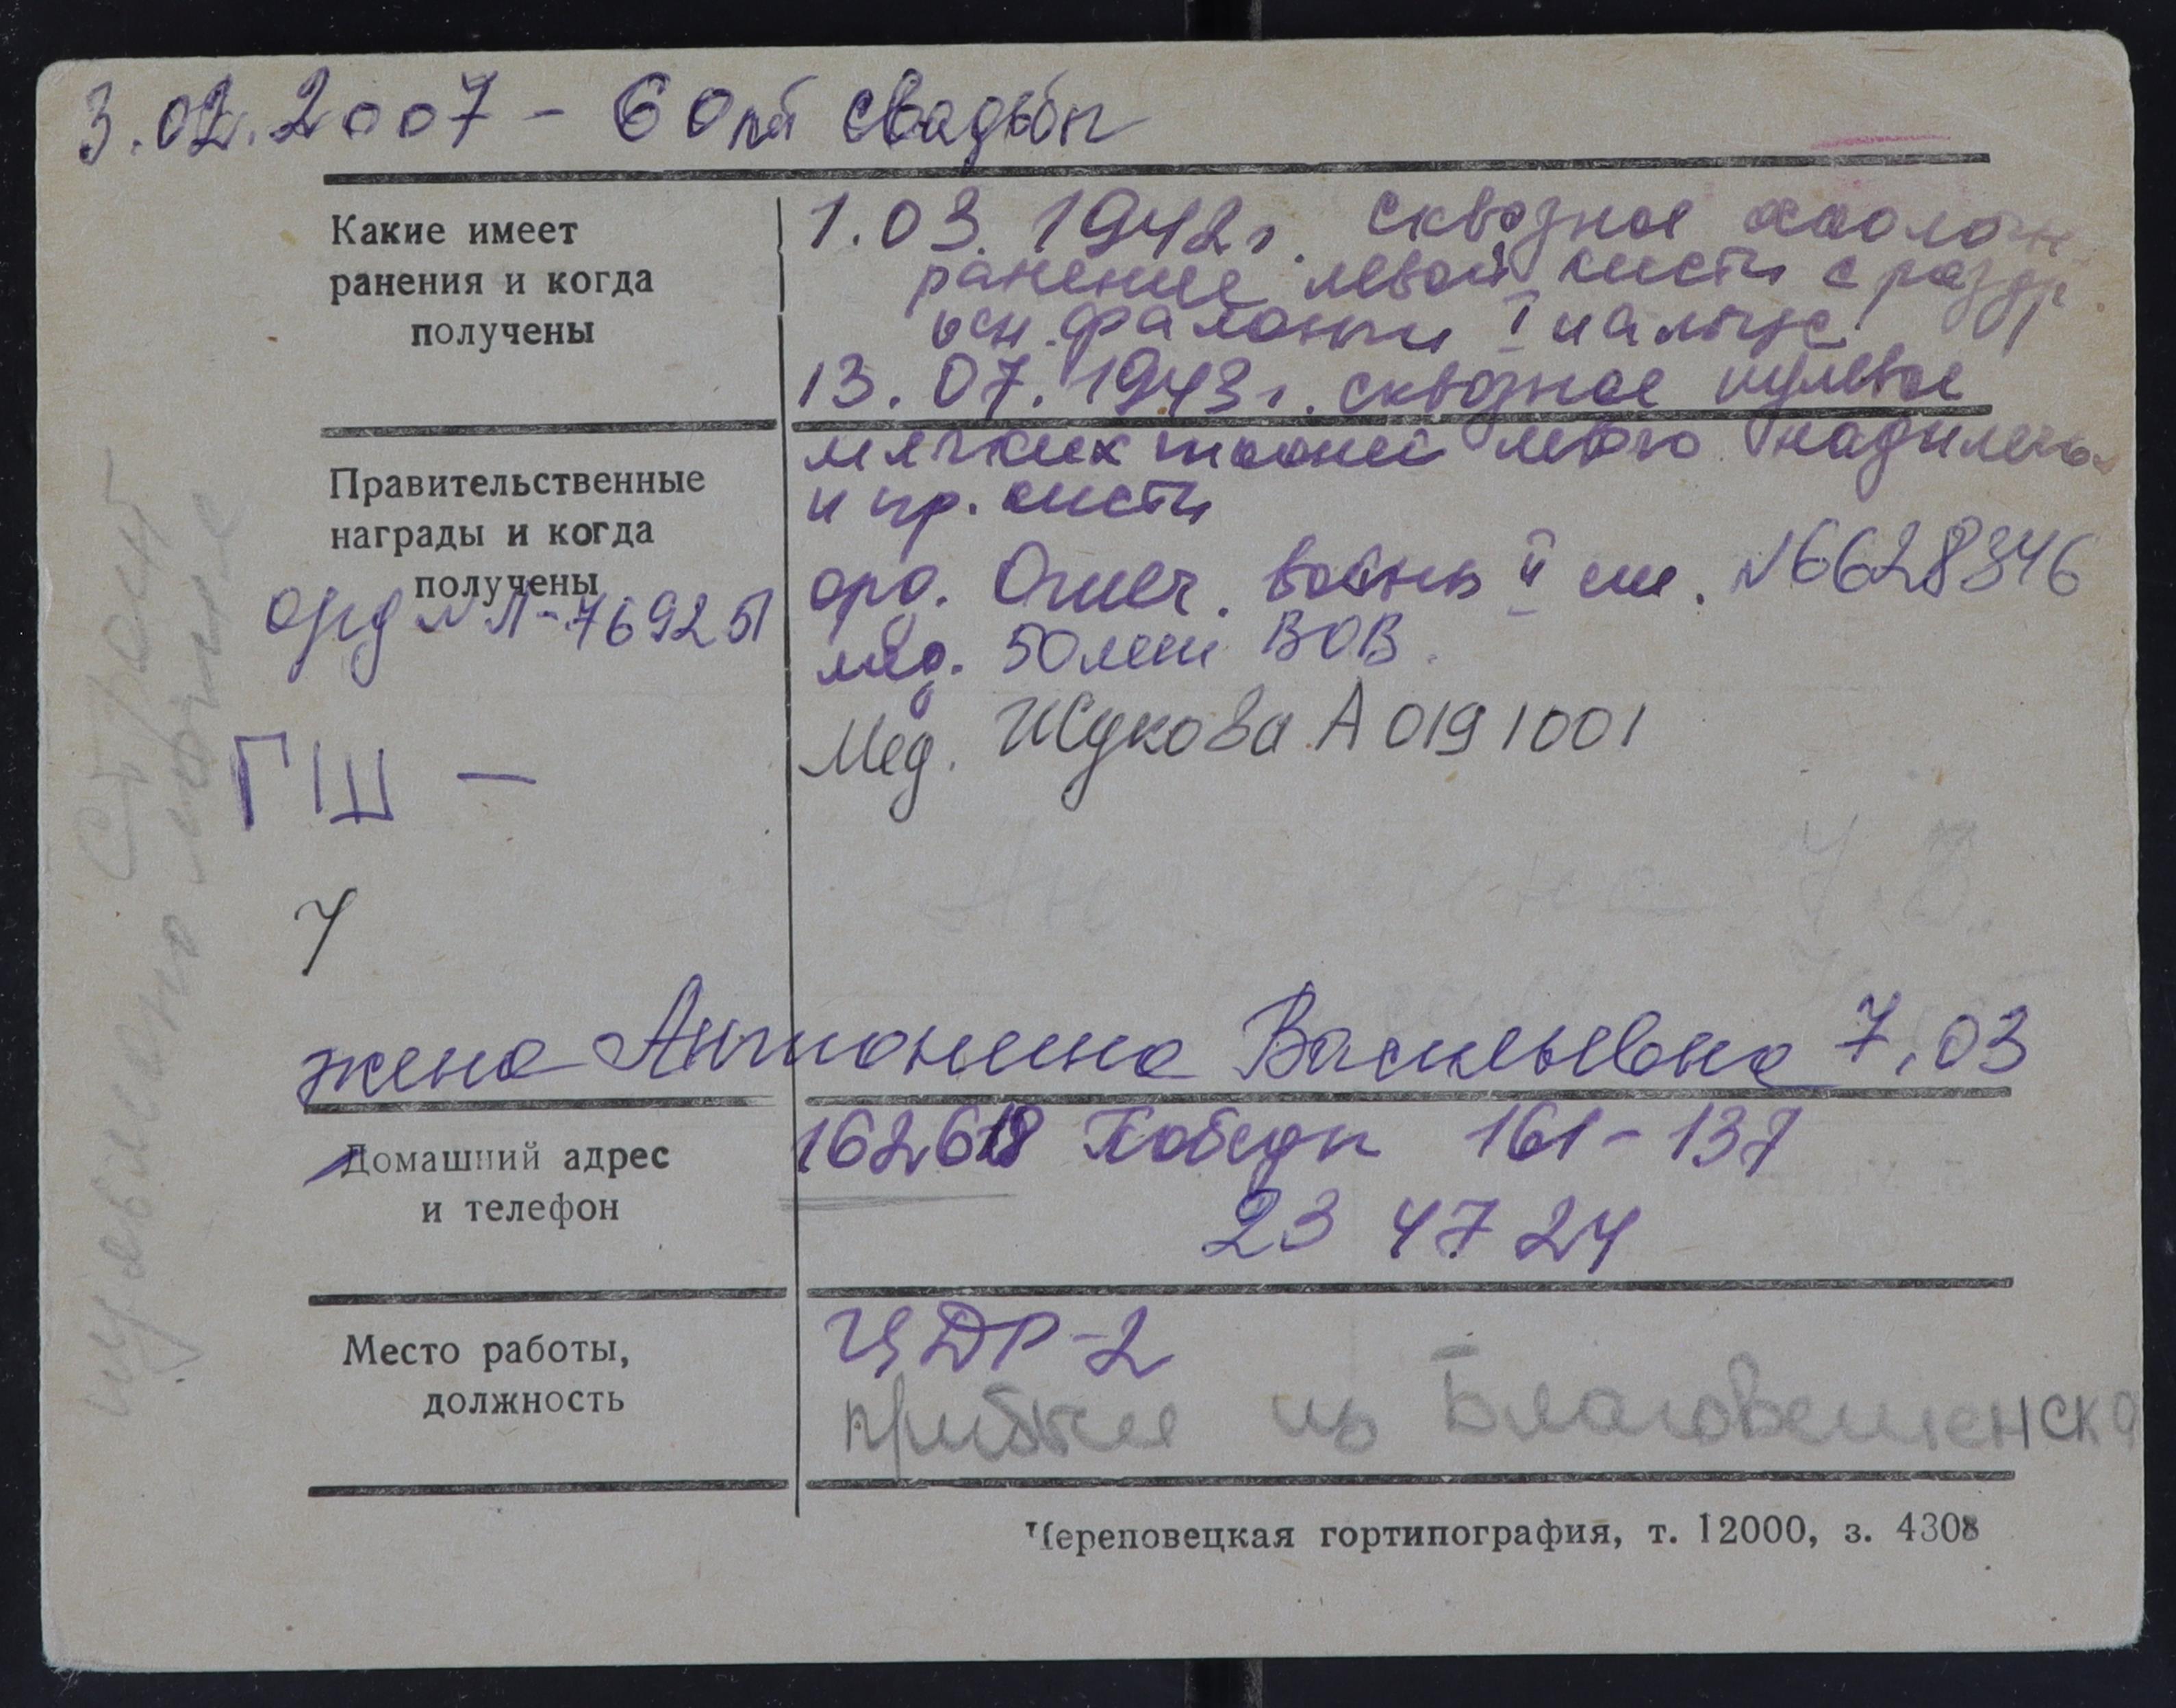 3.02.2007 - 60 лет свадьбы
Какие имеет
ранения и когда
получены
1.03.1942г. сквозное осколочн
ранение левой кисти с раздр
осн. фаланги I пальца
13.07.1943г. сквозное пулевое
мягких тканей левого надплечья
и пр. кисти
Правительственные
награды и когда
получены
орд N Л-769251
орд. Отеч. войны II ст. N6628346
мед. 50 лет ВОВ.
Мед. Жукова А 0191001
ГШ -
жена Антонина Васильевна 7.03
Домашний адрес
и телефон
162618 Победы 161-137
23 47 24
Место работы,
должность
ЦДР-2
прибыл из Благовещенска
Череповецкая гортипография, т. 12000, з. 4308